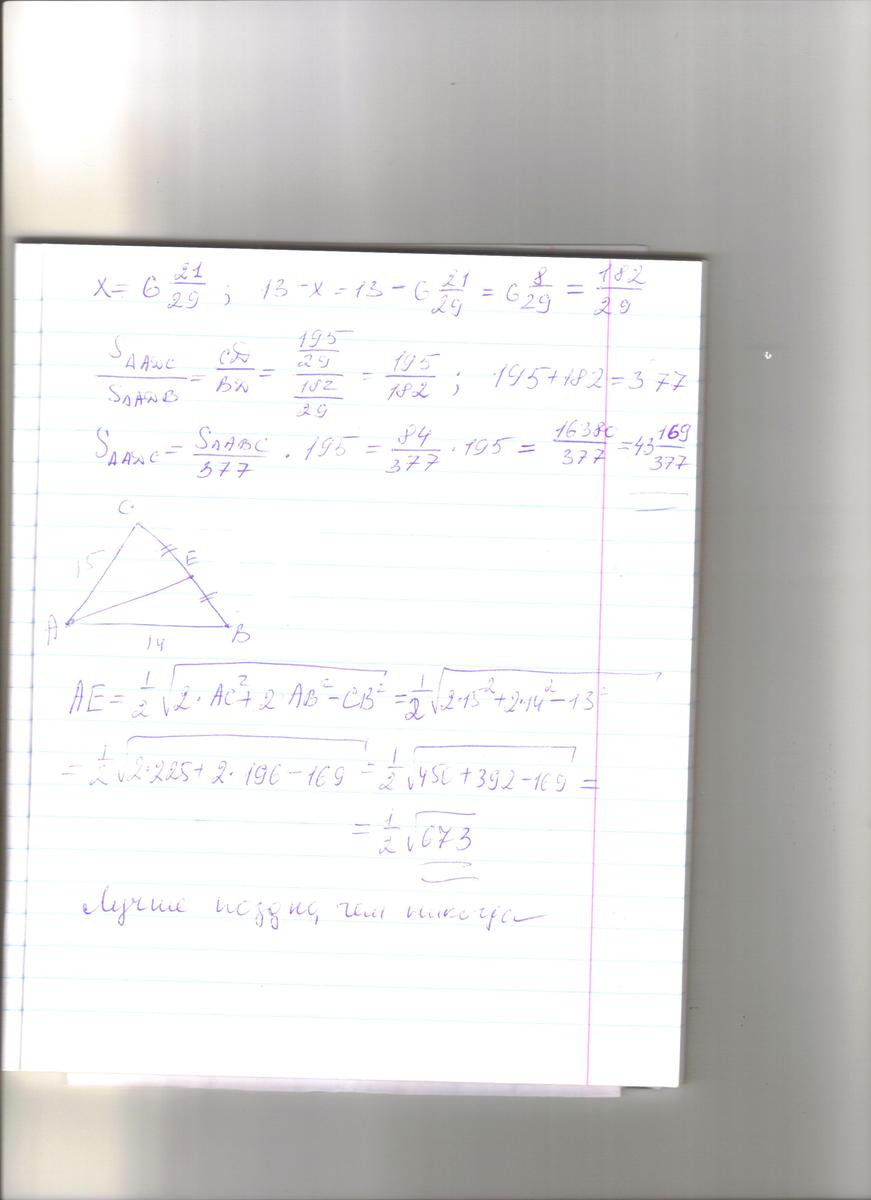 x = 6 21/29 ; 13 - x = 13 - 6 21/29 = 6 8/29 = 182/29
S△ANC / S△ANB = CN/BN = (195/29)/(182/29) = 195/182 ; 195 + 182 = 377
S△ANC = S△ABC/377 · 195 = 84/377 · 195 = 16380/377 = 43 169/377
C
15
E
A
B
14
AE = 1/2 √(2·AC² + 2 AB² - CB²) = 1/2 √(2·15² + 2·14² - 13²) =
= 1/2 √(2·225 + 2·196 - 169) = 1/2 √(450 + 392 - 169) =
= 1/2 √673
Лучше поздно, чем никогда